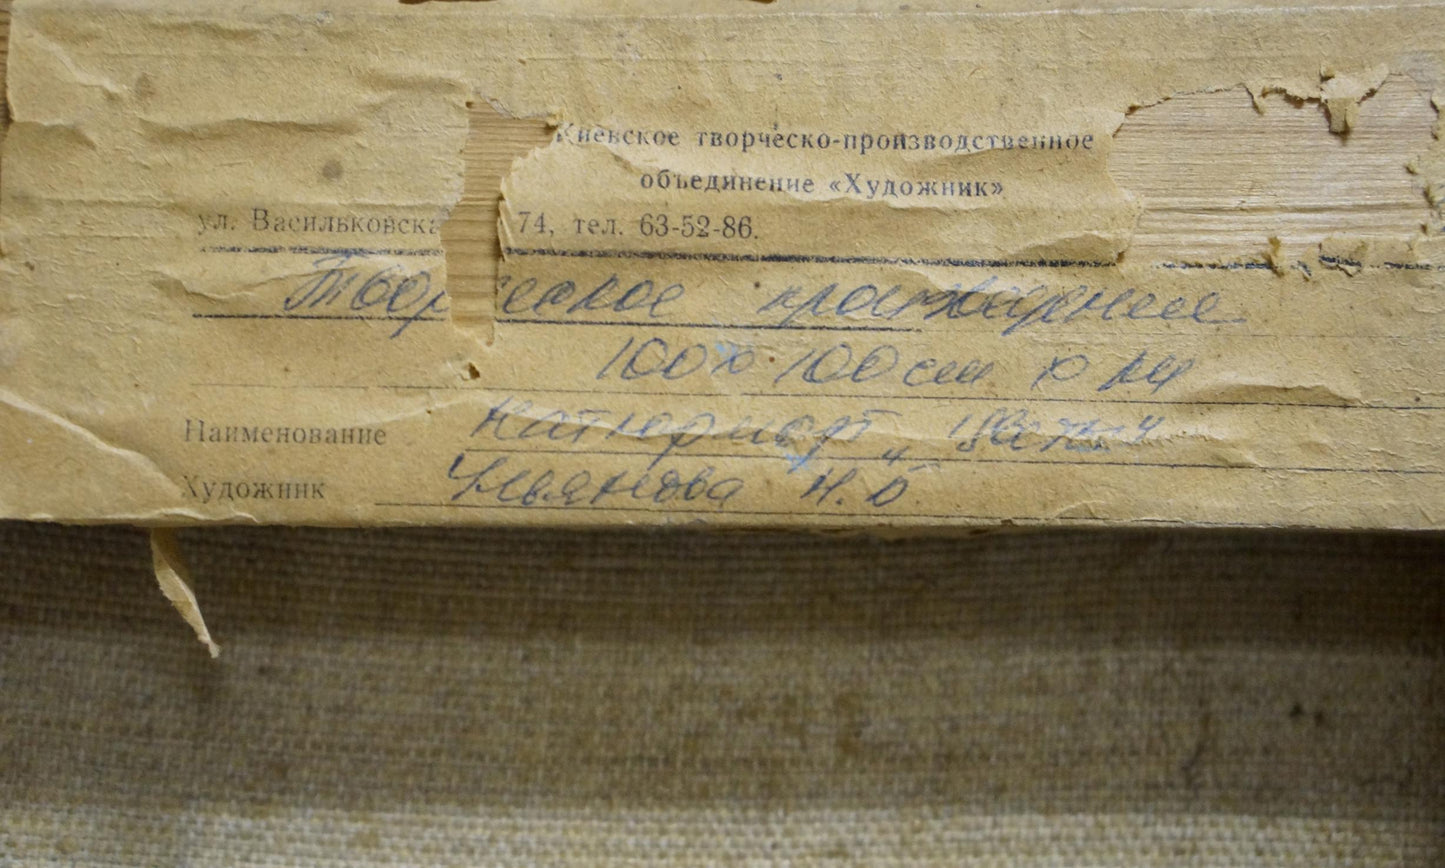 Киевское творческо-производственное
объединение «Художник»
ул. Васильковска 74, тел. 63-52-86.
Твор ческое
100 х 100 см х м
Наименование натюрморт „Цветы"
Художник Ульянова Н. Б.